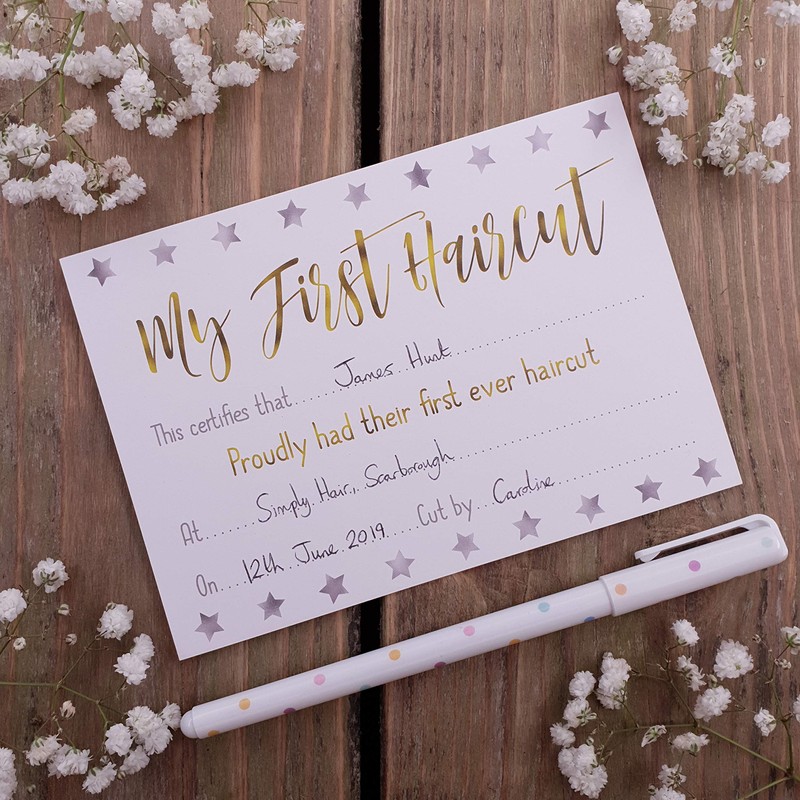 My First Haircut
This certifies that......James Hunt......
Proudly had their first ever haircut
At......Simply Hair, Scarborough......
On....12th June 2019....Cut by...Caroline......